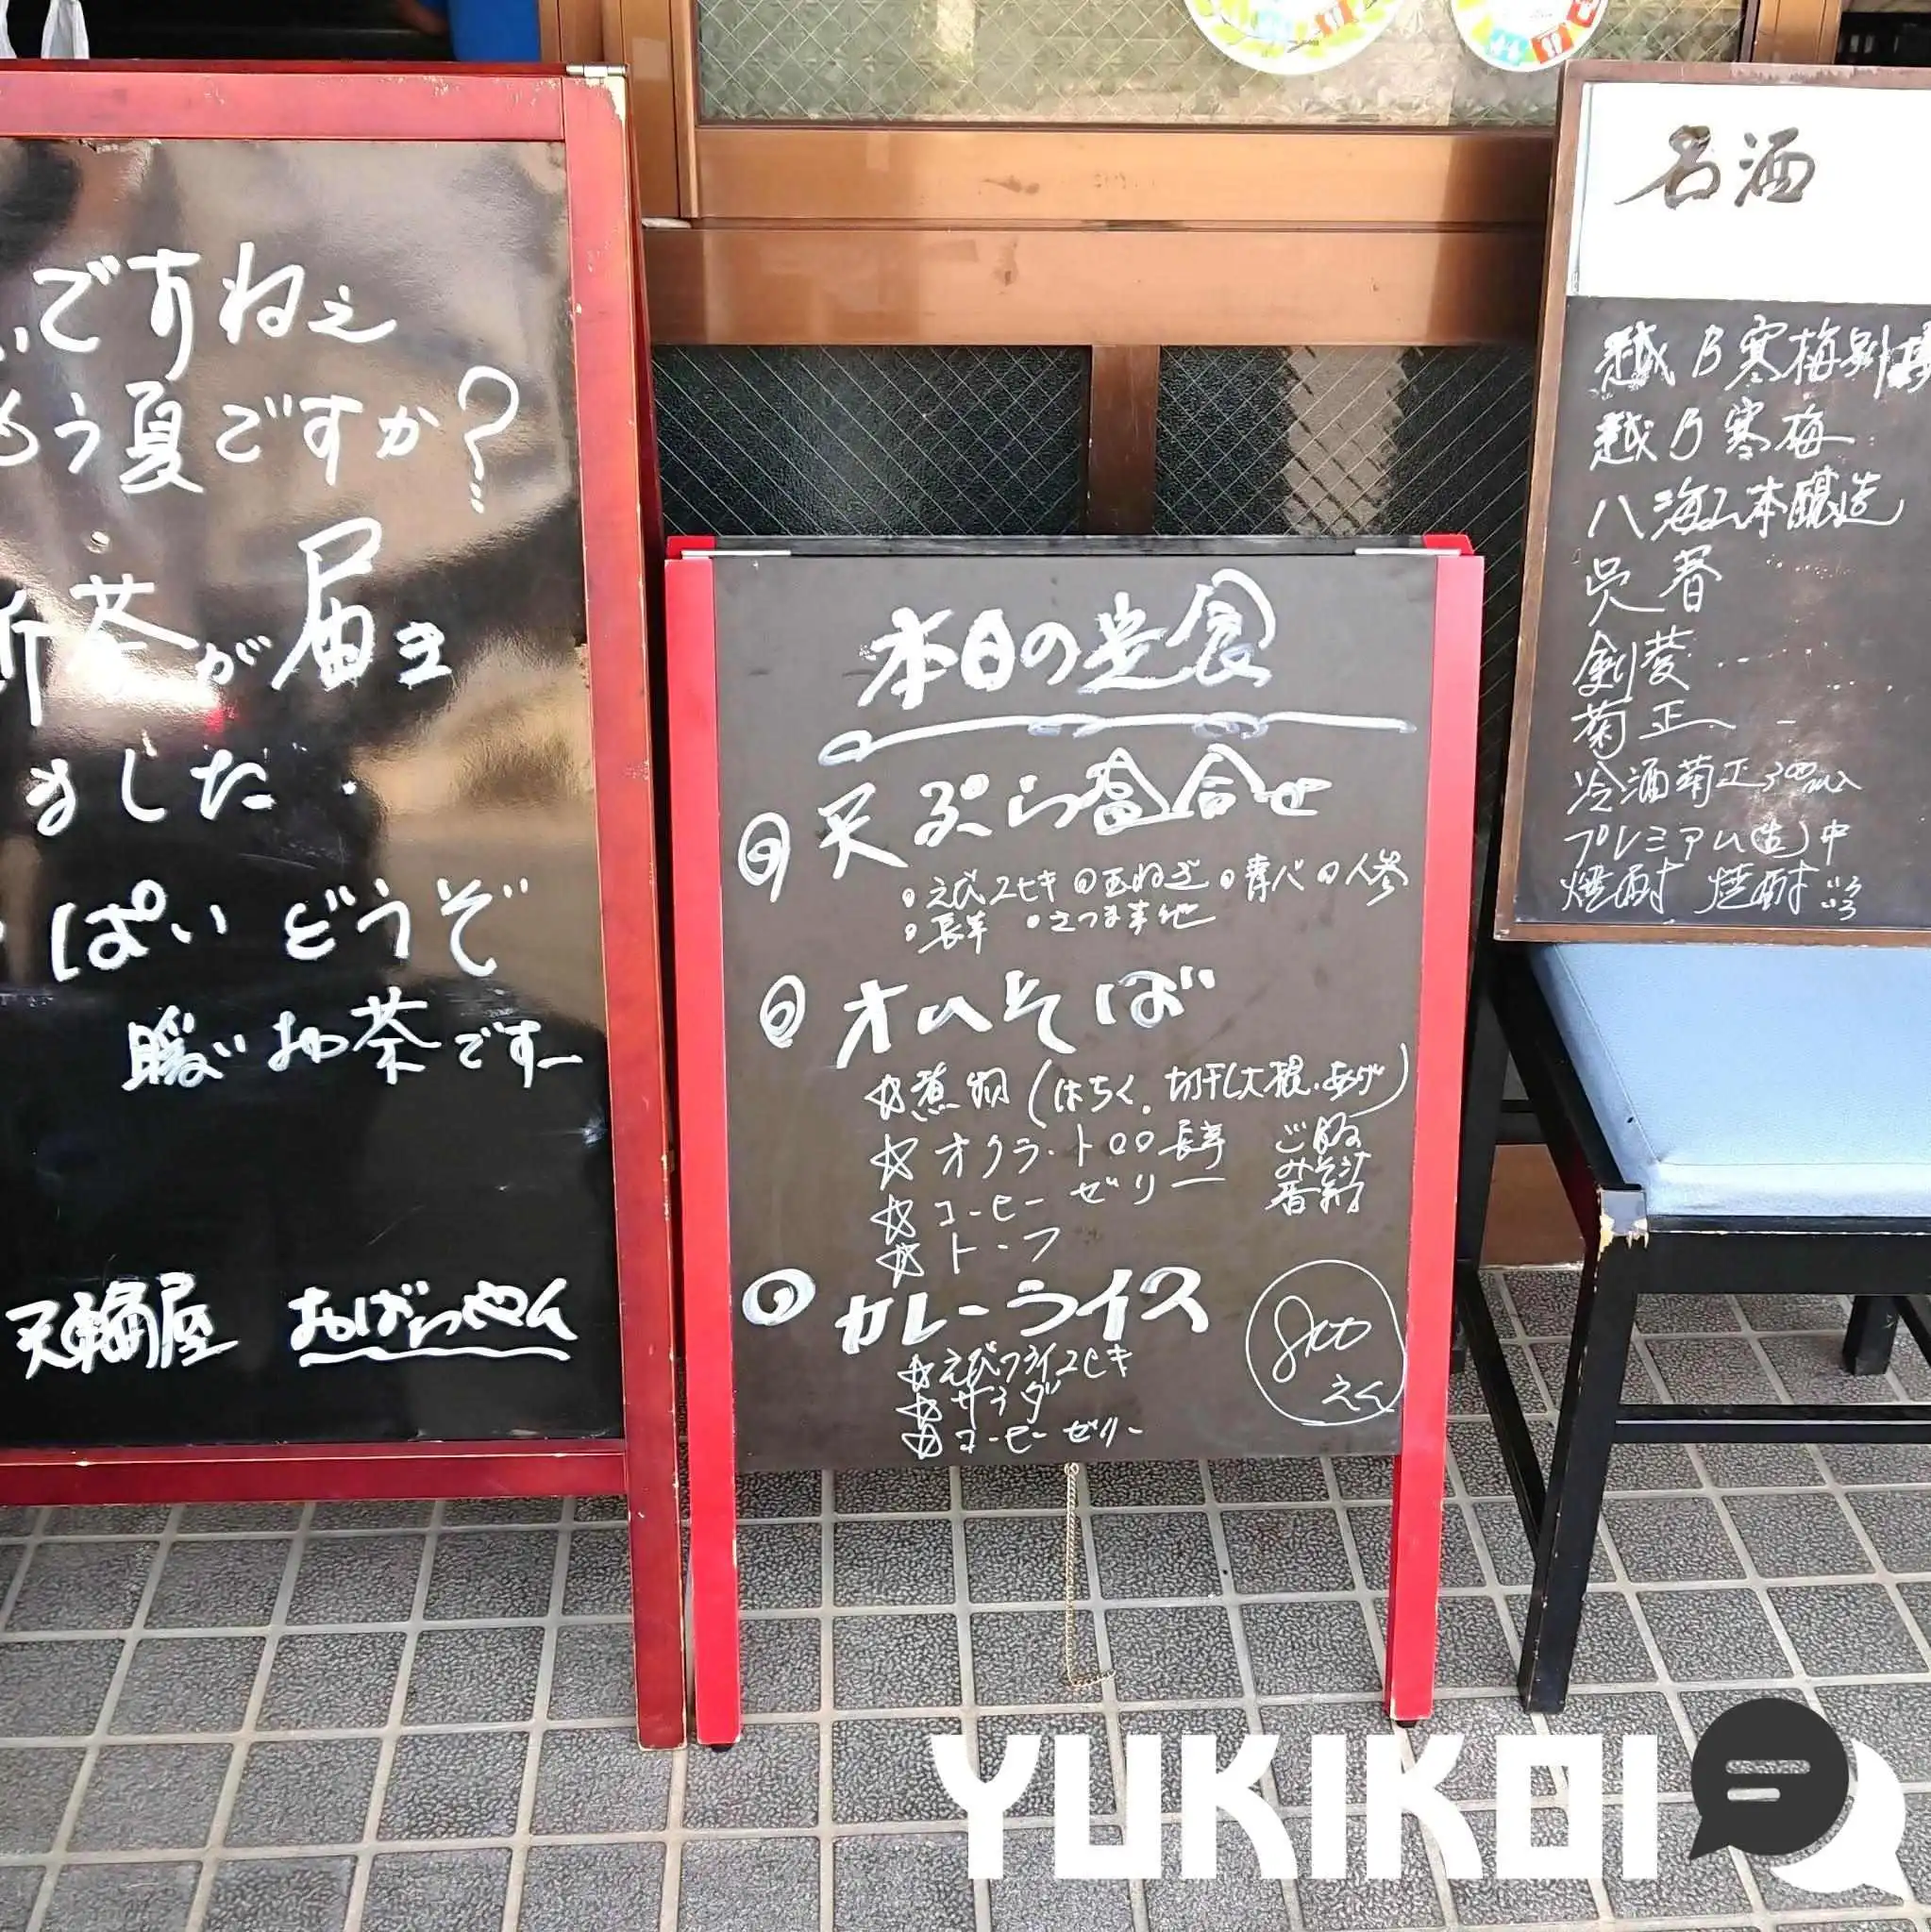 ですねぇ
もう夏ですか?
新茶が届き
ました
ぱい どうぞ
暖い お茶です
天輪屋 おばちゃん
本日の定食
天ぷら盛合せ
えび2ヒキ 玉ねぎ 青パ 人参
長芋 さつま芋
オムそば
☆煮物(はちく、切干し大根・あげ)
☆オクラ・トロロ長芋
ご飯
みそ汁
香物
☆コーヒーゼリー
☆トーフ
カレーライス
☆えびフライ2ヒキ
☆サラダ
☆コーヒーゼリー
名酒
越乃寒梅別撰
越乃寒梅
八海山本醸造
呉春
剣菱
菊正
冷酒菊正300ml
プレミアム(生)中
焼酎 焼酎いろいろ
YUKIKOI